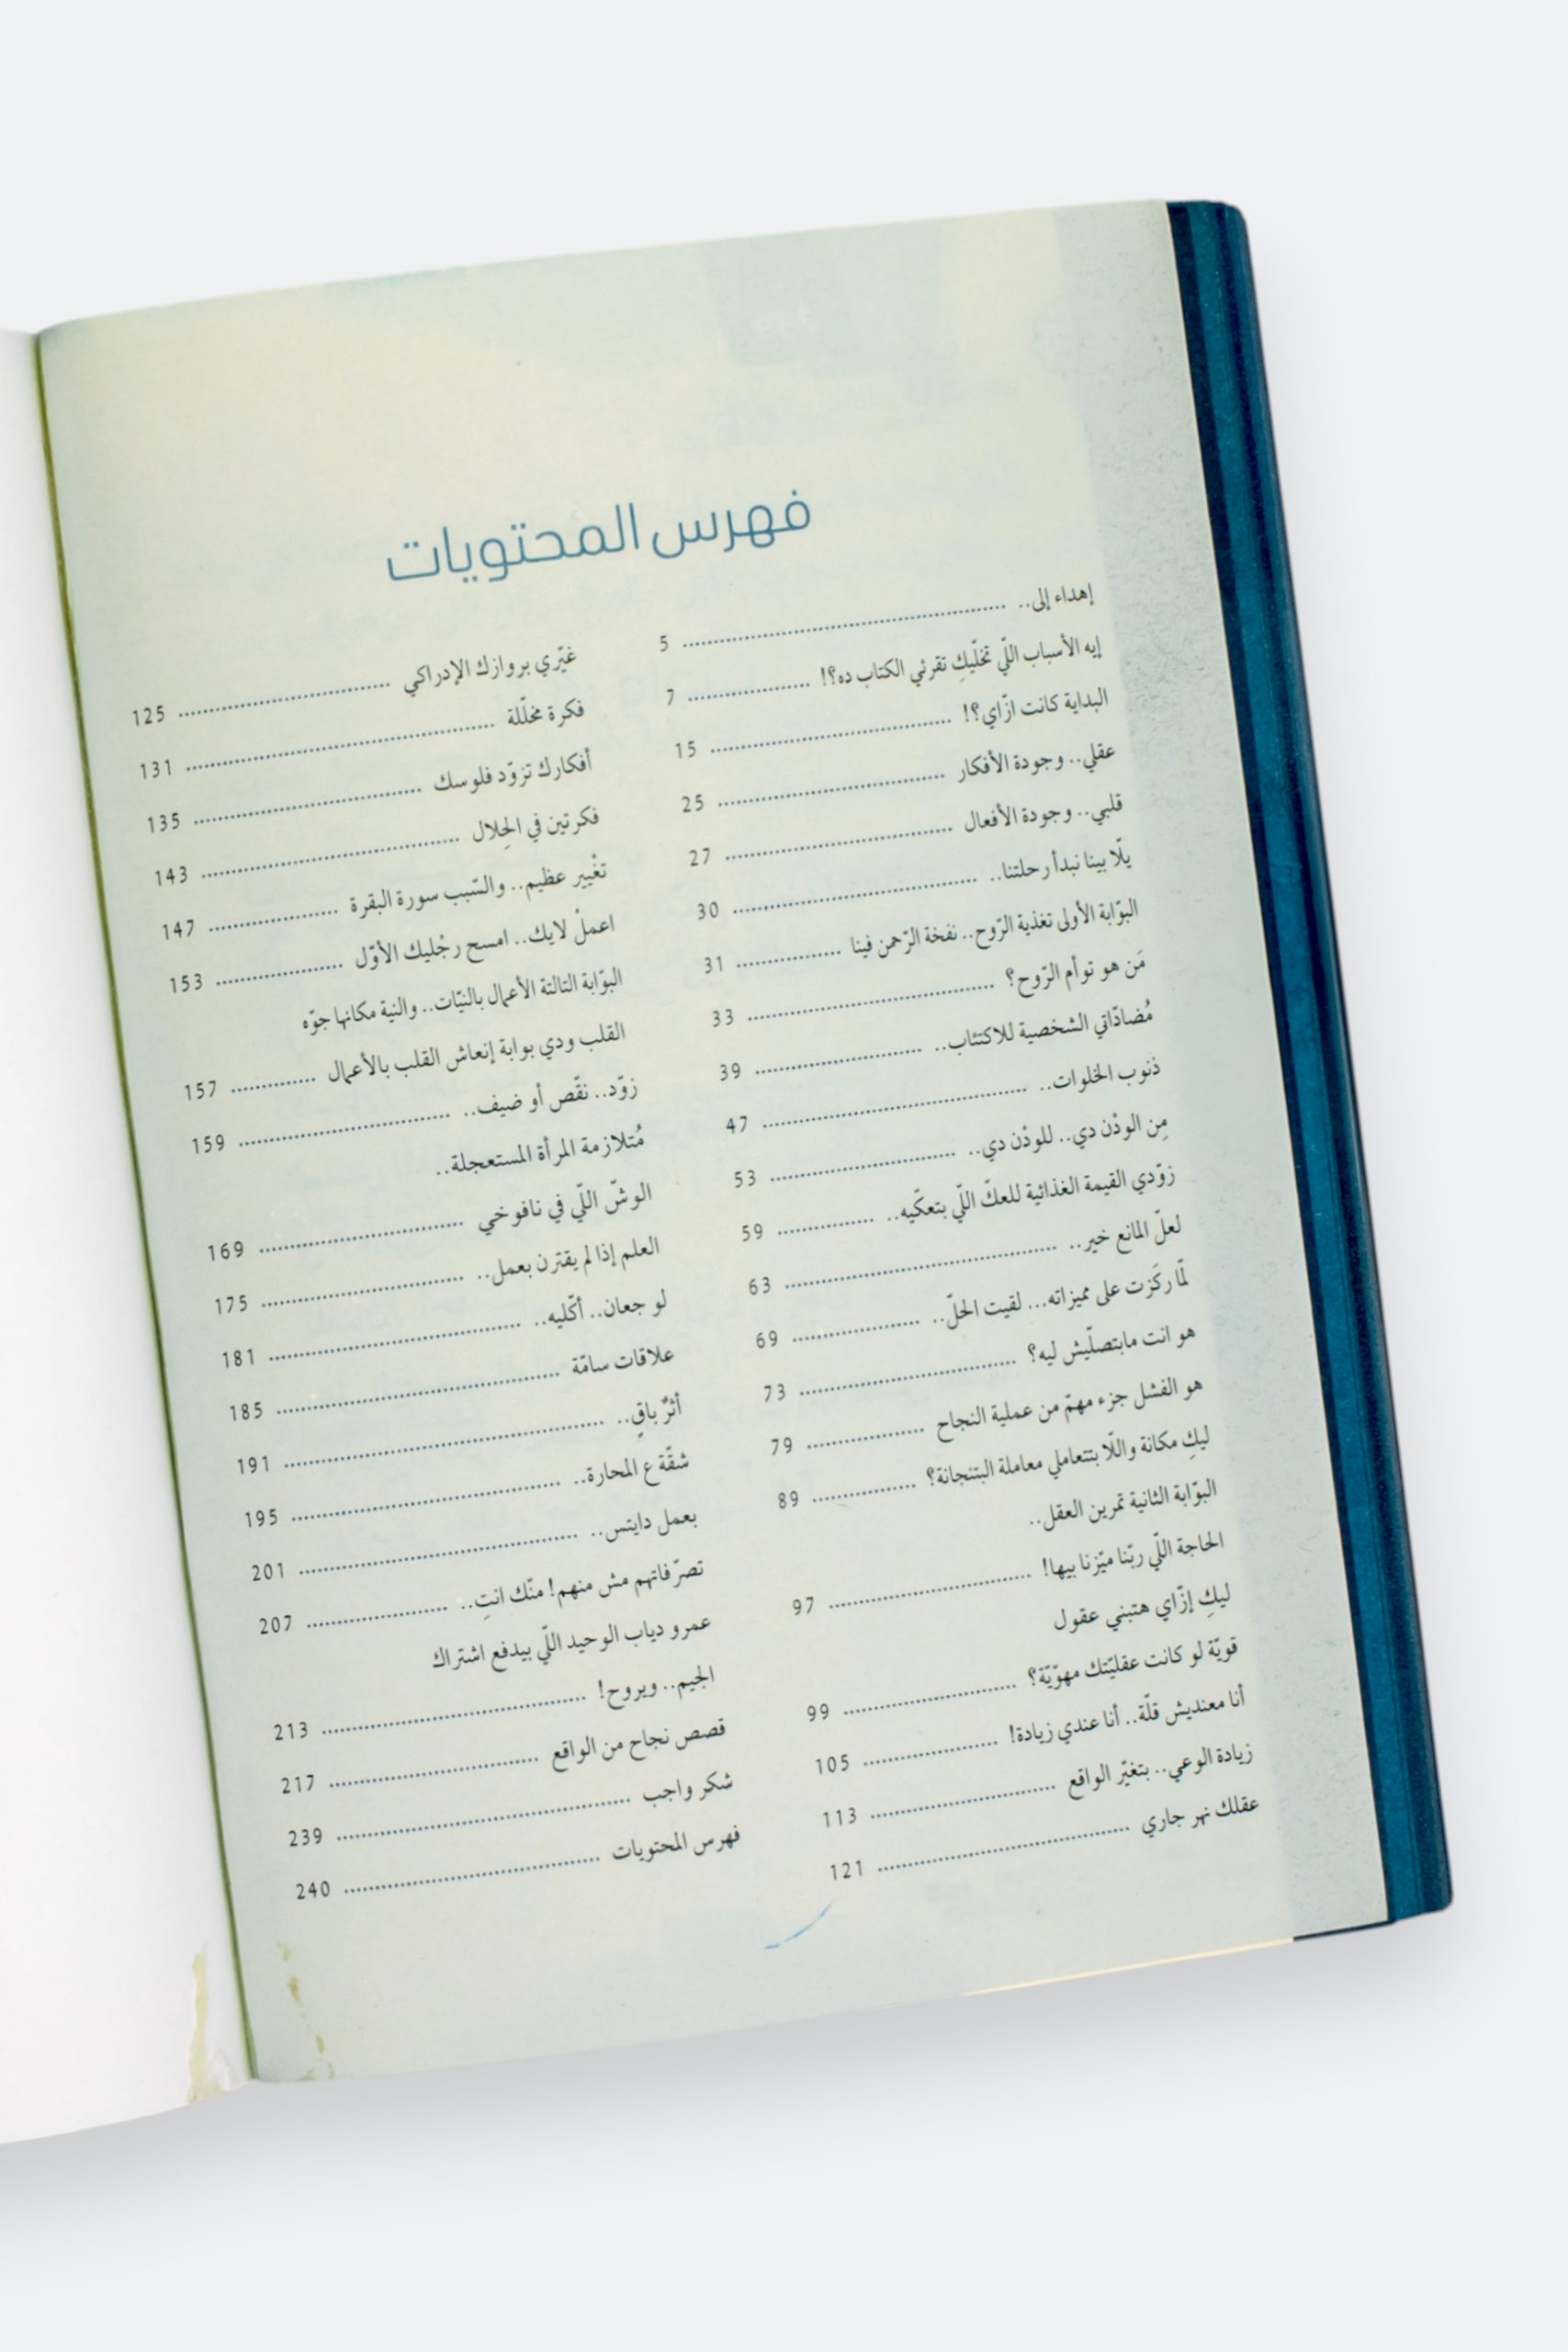 فهرس المحتويات
إهداء إلى.. 5
إيه الأسباب اللّي تخلّيكِ تقرئي الكتاب ده؟! 7
البداية كانت ازّاي؟! 15
عقلي.. وجودة الأفكار 25
قلبي.. وجودة الأفعال 27
يلّا بينا نبدأ رحلتنا.. 30
البوّابة الأولى تغذية الرّوح.. نفخة الرّحمن فينا 31
مَن هو توأم الرّوح؟ 33
مُضادّاتي الشخصية للاكتئاب.. 39
ذنوب الخلوات.. 47
مِن الودْن دي.. للودْن دي.. 53
زوّدي القيمة الغذائية للعكّ اللّي بتعكّيه.. 59
لعلّ المانع خير.. 63
لمّا ركَزت على مميزاته... لقيت الحلّ.. 69
هو انت مابتصلّيش ليه؟ 73
هو الفشل جزء مهمّ من عملية النجاح 79
ليكِ مكانة واللّا بتتعاملي معاملة البتنجانة؟ 89
البوّابة الثانية تمرين العقل..
الحاجة اللّي ربّنا ميّزنا بيها! 97
ليكِ إزّاي هتبني عقول
قويّة لو كانت عقليّتك مهوّيّة؟ 99
أنا معنديش قلّة.. أنا عندي زيادة! 105
زيادة الوعي.. بتغيّر الواقع 113
عقلك نهر جاري 121
غيّري بروازك الإدراكي 125
فكرة مخلّلة 131
أفكارك تزوّد فلوسك 135
فكرتين في الحِلال 143
تغْيير عظيم.. والسّبب سورة البقرة 147
اعملْ لايك.. امسح رجْليك الأوّل 153
البوّابة التالتة الأعمال بالنيّات.. والنية مكانها جوّه
القلب ودي بوابة إنعاش القلب بالأعمال 157
زوّد.. نقّص أو ضيف.. 159
مُتلازمة المرأة المستعجلة..
الوشّ اللّي في نافوخي 169
العلم إذا لم يقترن بعمل.. 175
لو جعان.. أكّليه.. 181
علاقات سامّة 185
أثرٌ باقٍ.. 191
شقّة ع المحارة.. 195
بعمل دايتس.. 201
تصرّفاتهم مش منهم! منّك انتِ.. 207
عمرو دياب الوحيد اللّي بيدفع اشتراك
الجيم.. ويروح! 213
قصص نجاح من الواقع 217
شكر واجب 239
فهرس المحتويات 240